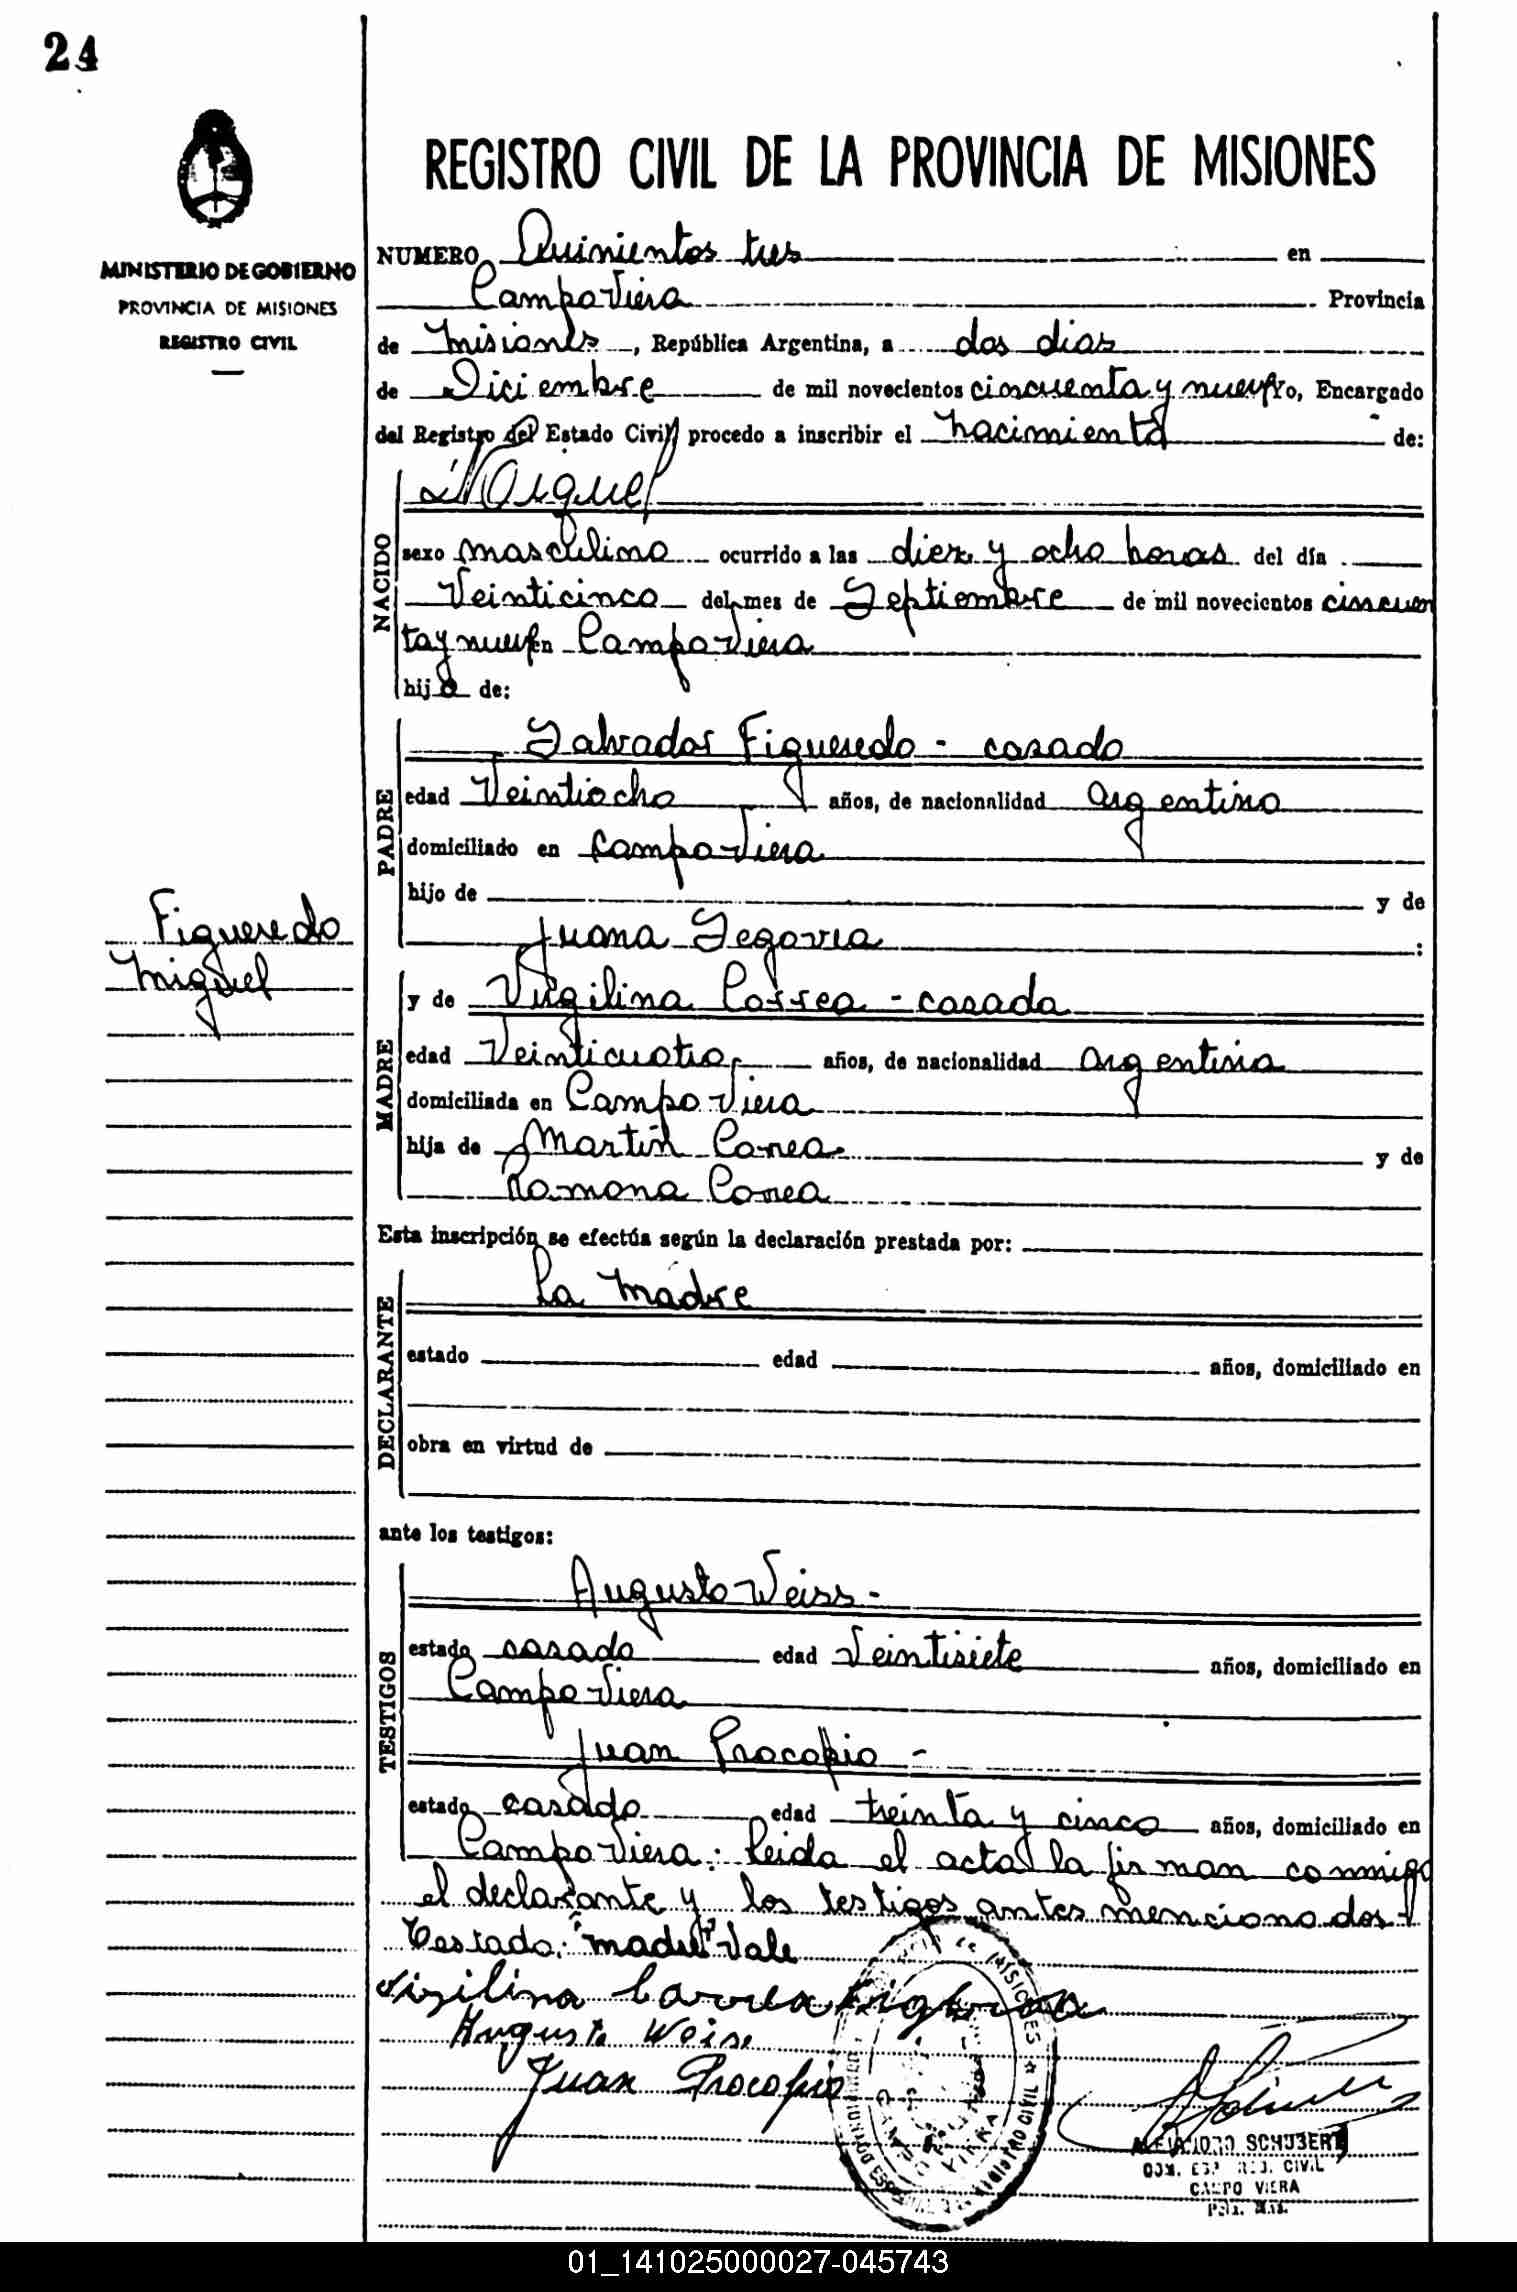 24
MINISTERIO DE GOBIERNO
PROVINCIA DE MISIONES
REGISTRO CIVIL
REGISTRO CIVIL DE LA PROVINCIA DE MISIONES
NUMERO Quinientos tres en
Campo Viera Provincia
de Misiones, República Argentina, a dos dias
de Diciembre de mil novecientos cincuenta y nueve Yo, Encargado
del Registro del Estado Civil procedo a inscribir el nacimiento de:
Miguel
NACIDO
sexo masculino ocurrido a las diez y ocho horas del día
Veinticinco del mes de Septiembre de mil novecientos cincuen
ta y nueve en Campo Viera
hijo de:
PADRE
Salvador Figueredo - casado
edad Veintiocho años, de nacionalidad argentino
domiciliado en Campo Viera
hijo de y de
Juana Segovia :
Figueredo
Miguel
MADRE
y de Virgilina Correa - casada
edad Veinticuatro años, de nacionalidad argentina
domiciliada en Campo Viera
hija de Martin Correa y de
Ramona Correa
Esta inscripción se efectúa según la declaración prestada por:
DECLARANTE
La Madre
estado edad años, domiciliado en
obra en virtud de
ante los testigos:
TESTIGOS
Augusto Weiss -
estado casado edad Veintisiete años, domiciliado en
Campo Viera
Juan Procopio -
estado casado edad treinta y cinco años, domiciliado en
Campo Viera: Leida el acta la firman conmigo
el declarante y los testigos antes mencionados
Testado: "madre" Vale
Virgilina Correa
Augusto Weiss
Juan Procopio
PROVINCIA DE MISIONES REGISTRO CIVIL
ALEJANDRO SCHUBERT
COM. ESP. REG. CIVIL
CAMPO VIERA
01_141025000027-045743